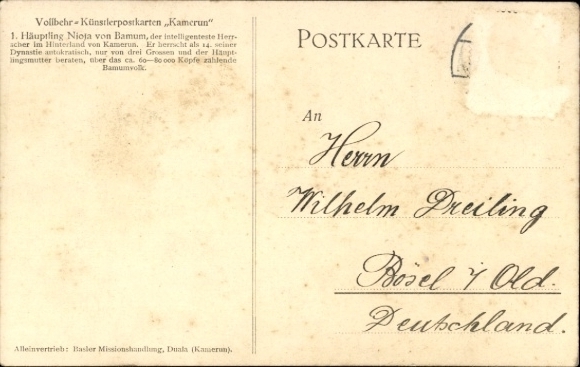 Vollbehr-Künstlerpostkarten „Kamerun“
1. Häuptling Nioja von Bamum, der intelligenteste Herr-
scher im Hinterland von Kamerun. Er herrscht als 14. seiner
Dynastie autokratisch, nur von drei Grossen und der Häupt-
lingsmutter beraten, über das ca. 60—80 000 Köpfe zählende
Bamumvolk.
Alleinvertrieb: Basler Missionshandlung, Duala (Kamerun).
POSTKARTE
An
Herrn
Wilhelm Dreiling
Bösel i/ Old.
Deutschland.